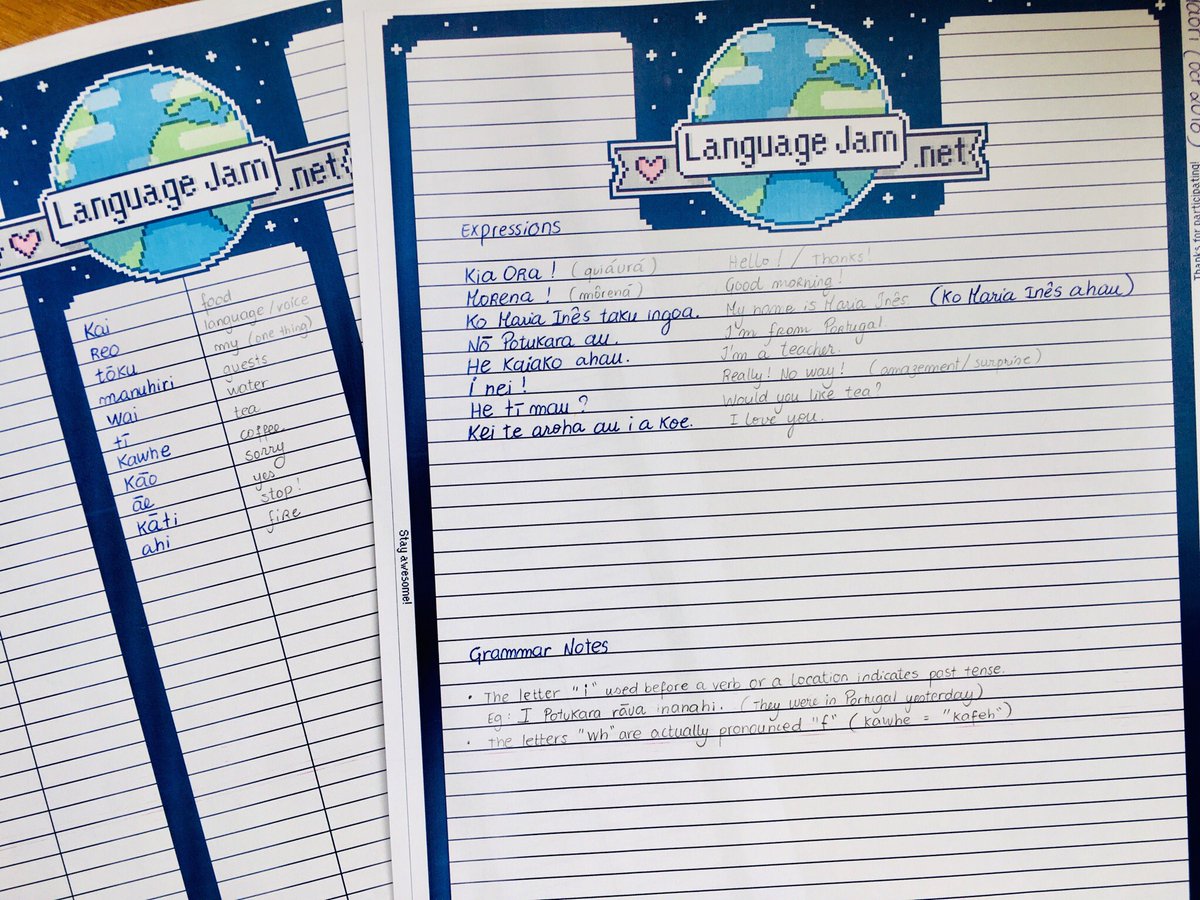 Language Jam
.net
Kai food
Reo language/voice
tōku my (one thing)
manuhiri guests
wai water
tī tea
Kawhe coffee
Kāo sorry
āe yes
Kāti stop!
ahi fire
Language Jam
.net
Expressions
Kia ORa! (quiáurá) Hello! / Thanks!
Morena! (môrená) Good morning!
Ko Maria Inês taku ingoa. My name is Maria Inês (Ko Maria Inês ahau)
Nō Potukara au. I'm from Portugal.
He Kaiako ahau. I'm a teacher.
Í nei! Really! No way! (amazement/surprise)
He tī mau? Would you like tea?
Kei te aroha au i a Koe. I love you.
Grammar Notes
• The letter "i" used before a verb or a location indicates past tense.
Eg: I Potukara rāua inanahi. (They were in Portugal yesterday)
• The letters "wh" are actually pronounced "f" (kawhe = "kafeh")
Stay awesome!
Thanks for participating!